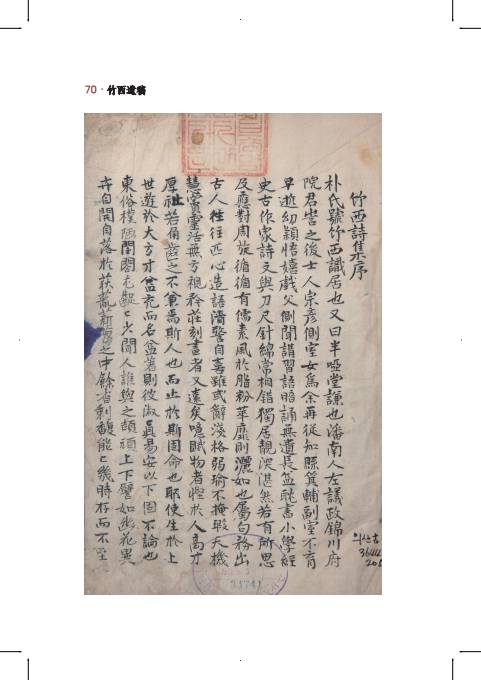 70 · 竹西遺稿
竹西詩集序
朴氏號竹西識居也又曰半啞堂謙也潘南人左議政錦川府
院君訔之後士人宗彦側室女爲余再從知縣箕輔副室不育
早逝幼穎悟嬉戱父側聞講習語暗誦無遺長益耽書小學經
史古作家詩文與刀尺針線常相錯獨居靚深湛然若有所思
及應對周旋循循有儒素風於脂粉華靡則灑如也屬句務出
古人性往匠心造語淸警自喜雖或辭淺格弱瑜不掩瑕天機
慧竇靈活無方視矜莊刻畫者又遠矣噫賦物者慳於人高才
厚祉若角齒之不兼焉斯人也而止於斯固命也耶使生於上
世遊於大方才益充而名益著則彼淑眞易安以下固不論也
東俗樸陋閨閤尤齪齪少聞人誰與之頡頏上下譬如幽花異
卉自開自落於荻蘆菥蓂之中餘冶剩馥能幾時存而不至
의산古
3644
206
34741